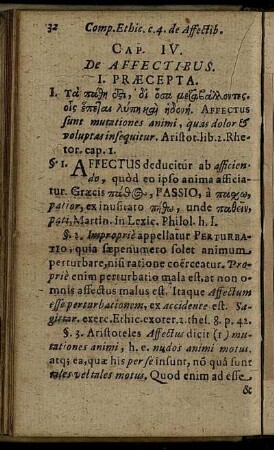 32 Comp. Ethic. c. 4. de Affectib.
CAP. IV.
DE AFFECTIBUS.
I. PRÆCEPTA.
I. Τὰ πάθη ἐςι, δι' ὅσα μεταβάλλοντες,
οἷς ἕπεται λύπη καὶ ἡδονή. AFFECTUS
sunt mutationes animi, quas dolor &
voluptas insequitur. Aristot. lib. 2. Rhe-
tor. cap. 1.
§ 1. AFFECTUS deducitur ab afficien-
do, quòd eo ipso anima afficia-
tur. Græcis πάθ@, PASSIO, à πάσχω,
patior, ex inusitato πήθω, unde παθεῖν,
pati, Martin. in Lexic. Philol. h. l.
§. 2. Impropriè appellatur PERTURBA-
TIO, quia sæpenumero solet animum
perturbare, nisi ratione coërceatur. Pro-
priè enim perturbatio mala est, at non o-
mnis affectus malus est. Itaque Affectum
esse perturbationem, ex accidente est. Sa-
gittar. exerc. Ethic. exoter. 2. thes. 8. p. 42.
§. 3. Aristoteles Affectus dicit (1) mu-
tationes animi, h. e. nudos animi motus,
atq; ea, quæ his per se insunt, nō quâ sunt
tales vel tales motus. Quod enim ad esse
&